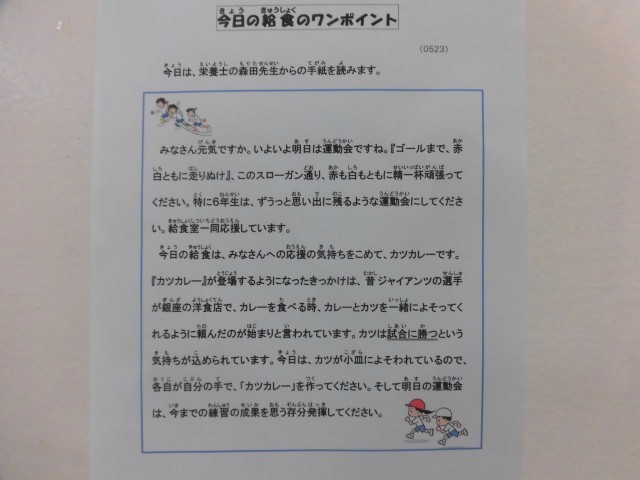 今日の給食のワンポイント
(0523)
今日は、栄養士の森田先生からの手紙を読みます。
みなさん元気ですか。いよいよ明日は運動会ですね。『ゴールまで、赤
白ともに走りぬけ』、このスローガン通り、赤も白もともに精一杯頑張って
ください。特に6年生は、ずうっと思い出に残るような運動会にしてくださ
い。給食室一同応援しています。
今日の給食は、みなさんへの応援の気持ちをこめて、カツカレーです。
『カツカレー』が登場するようになったきっかけは、昔ジャイアンツの選手
が銀座の洋食店で、カレーを食べる時、カレーとカツを一緒によそってく
れるように頼んだのが始まりと言われています。カツは試合に勝つという
気持ちが込められています。今日は、カツが小皿によそわれているので、
各自が自分の手で、「カツカレー」を作ってください。そして明日の運動会
は、今までの練習の成果を思う存分発揮してください。